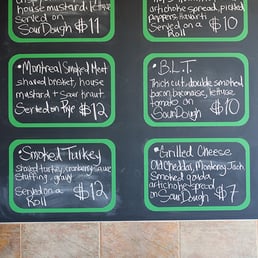 house mustard, lettuce
Served on
SourDough $11
artichoke spread, pickled
peppers, havarti
Served on a
Roll $10
•Montreal Smoked Meat
shaved brisket, house
mustard + Sour kraut
Served on Rye $12
•B.L.T.
Thick cut, double smoked
bacon, baconaise, lettuce
tomato on
SourDough $10
•Smoked Turkey
Shaved turkey, cranberry sauce
Stuffing, gravy
Served on a
Roll $12
•Grilled Cheese
Old Cheddar, Monterey Jack
Smoked gouda,
artichoke spread
on SourDough $7